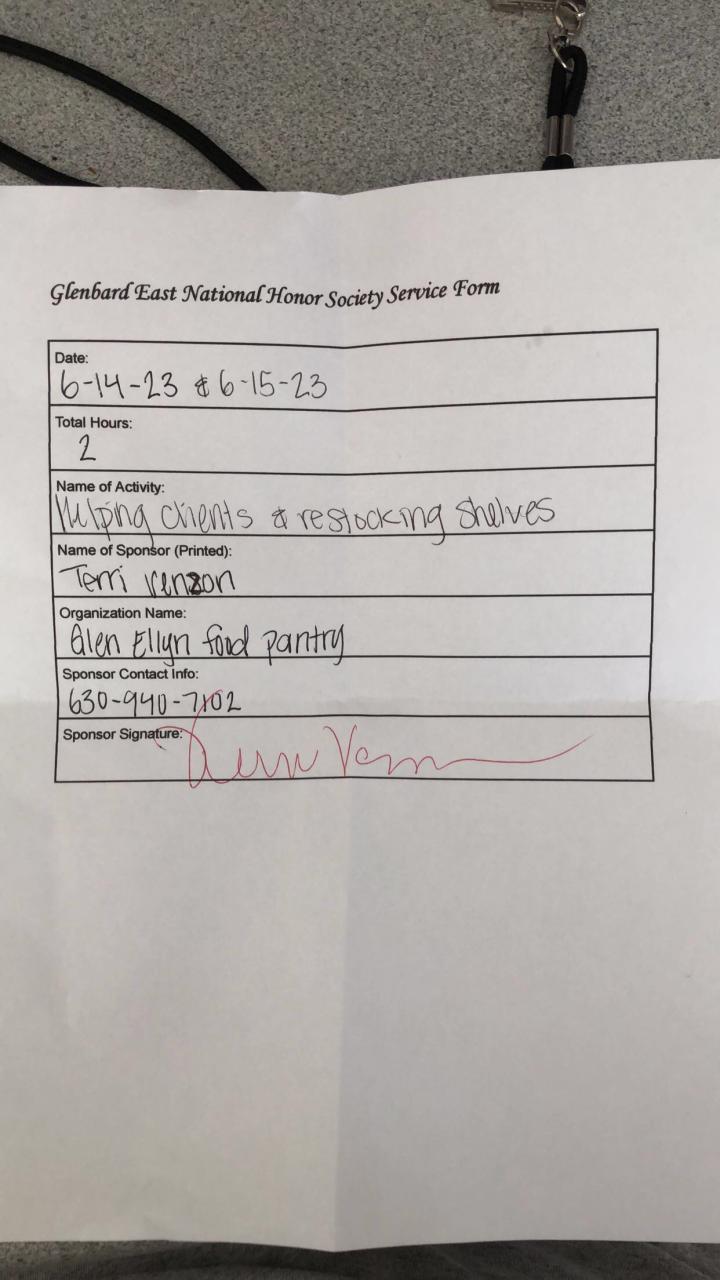 Glenbard East National Honor Society Service Form
Date:
6-14-23 & 6-15-23
Total Hours:
2
Name of Activity:
Helping clients & restocking shelves
Name of Sponsor (Printed):
Terri Venzon
Organization Name:
Glen Ellyn food pantry
Sponsor Contact Info:
630-940-7102
Sponsor Signature: